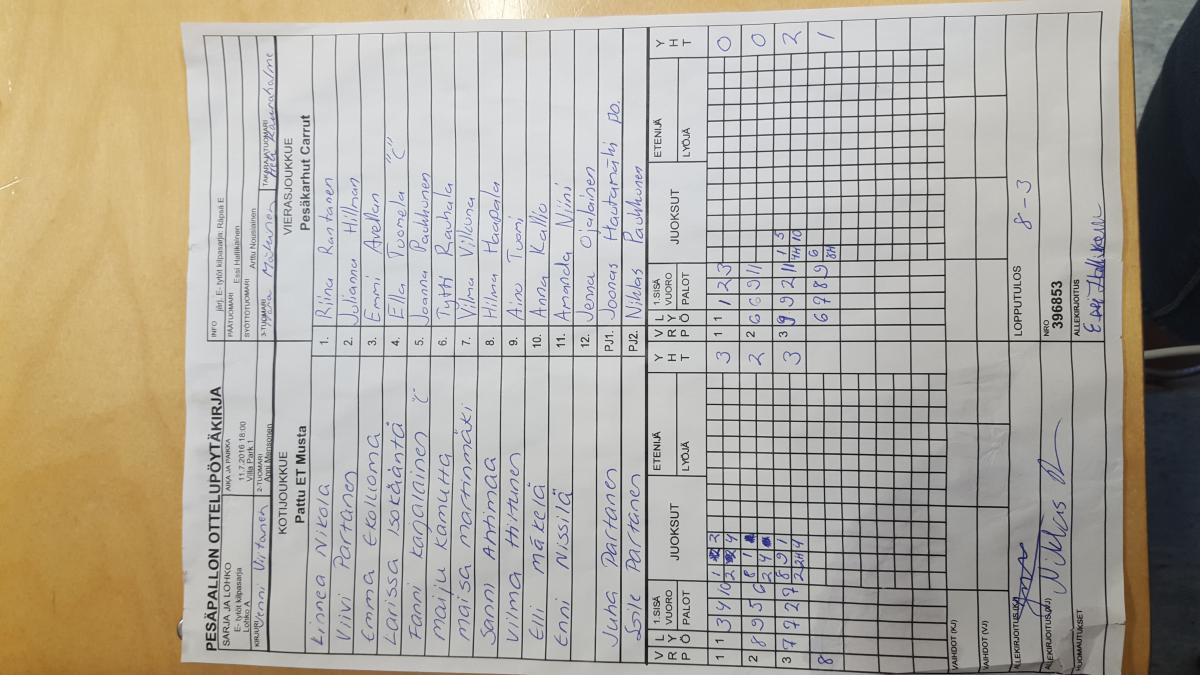 PESÄPALLON OTTELUPÖYTÄKIRJA
SARJA JA LOHKO
E- tytöt kilpasarja
Lohko A
AIKA JA PAIKKA
11.7.2016 18:00
Villa Park 1
INFO järj. E- tytöt kilpasarja: Räpsä E
PÄÄTUOMARI Essi Hallikainen
SYÖTTÖTUOMARI Arttu Nousiainen
KIRJURI Venni Virtanen
2-TUOMARI Anni Mensonen
3-TUOMARI
TAKARAJATUOMARI
KOTIJOUKKUE
Pattu ET Musta
VIERASJOUKKUE
Pesäkarhut Carrut
Linnea Nikola 1. Riina Rantanen
Viivi Partanen 2. Julianna Hillman
Emma Kollioma 3. Emmi Arellan
Larissa Isokääntä 4. Ella Tuomela "C"
Fanni Karjalainen C 5. Joanna Paukkunen
Maiju Kamutta 6. Tytti Rauhala
Maisa Martinmäki 7. Vilma Vilkuna
Sanni Ahtimaa 8. Hilma Haapala
Vilma Hirtunen 9. Aino Tuomi
Elli Mäkelä 10. Anna Kallio
Enni Nissilä 11. Amanda Niini
12. Jenna Ojalainen
Juha Partanen PJ1. Joonas Hautamäki po.
Soile Partanen PJ2. Niklas Paukkunen
V R P L Y Ö 1.SISÄ VUORO PALOT JUOKSUT ETENIJÄ LYÖJÄ Y H T V R P L Y Ö 1.SISÄ VUORO PALOT JUOKSUT ETENIJÄ LYÖJÄ Y H T
1 1 3 4 10 3 1 1 1 2 3 0
2 8 9 5 6 2 2 6 6 9 11 0
3 7 7 2 7 3 3 9 9 2 11 1 5 4H 10 2
8 6 7 8 9 6 8H 1
VAIHDOT (KJ)
VAIHDOT (VJ)
LOPPUTULOS 8 - 3
ALLEKIRJOITUS (KJ)
ALLEKIRJOITUS (VJ) Niklas
NRO
396853
HUOMAUTUKSET
ALLEKIRJOITUS
Essi Hallikainen